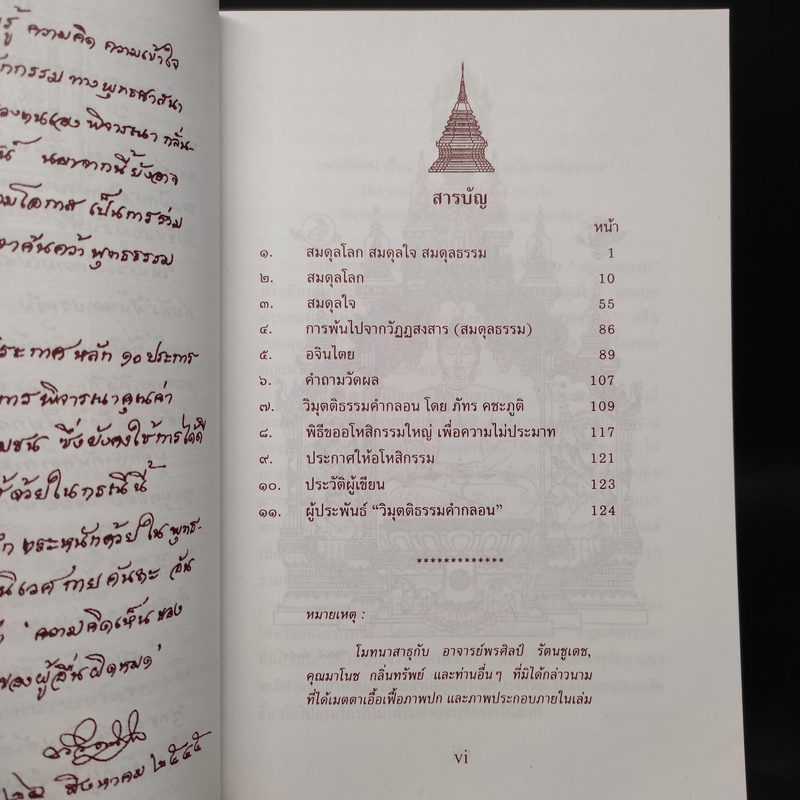 รู้ ความคิด ความเข้าใจ
กกรรม ทางพุทธศาสนา
ของตนเอง พิจารณา กลั่น-
นอกจากนี้ ยังอาจ
โอกาส เป็นการร่วม
ค้นคว้า พุทธธรรม
ประกาศ หลัก ๑๐ ประการ
การ พิจารณาคุณค่า
ซึ่งยังคงใช้การได้ดี
ด้วยในกรณีนี้
ตระหนักด้วย ใน พุทธ-
ความคิดเห็น ของ
ของผู้อื่นผิดหมด'
สิงหาคม ๒๕๔๕
สารบัญ
หน้า
๑. สมดุลโลก สมดุลใจ สมดุลธรรม 1
๒. สมดุลโลก 10
๓. สมดุลใจ 55
๔. การพ้นไปจากวัฏฏสงสาร (สมดุลธรรม) 86
๕. อจินไตย 89
๖. คำถามวัดผล 107
๗. วิมุตติธรรมคำกลอน โดย ภัทร คชะภูติ 109
๘. พิธีขออโหสิกรรมใหญ่ เพื่อความไม่ประมาท 117
๙. ประกาศให้อโหสิกรรม 121
๑๐. ประวัติผู้เขียน 123
๑๑. ผู้ประพันธ์ “วิมุตติธรรมคำกลอน” 124
*************
หมายเหตุ :
โมทนาสาธุกับ อาจารย์พรศิลป์ รัตนชูเดช,
คุณมาโนช กลิ่นทรัพย์ และท่านอื่นๆ ที่มิได้กล่าวนาม
ที่ได้เมตตาเอื้อเฟื้อภาพปก และภาพประกอบภายในเล่ม
vi